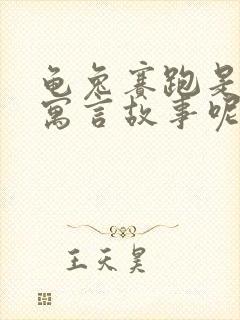 龟兔赛跑是
寓言故事呢
王天昊